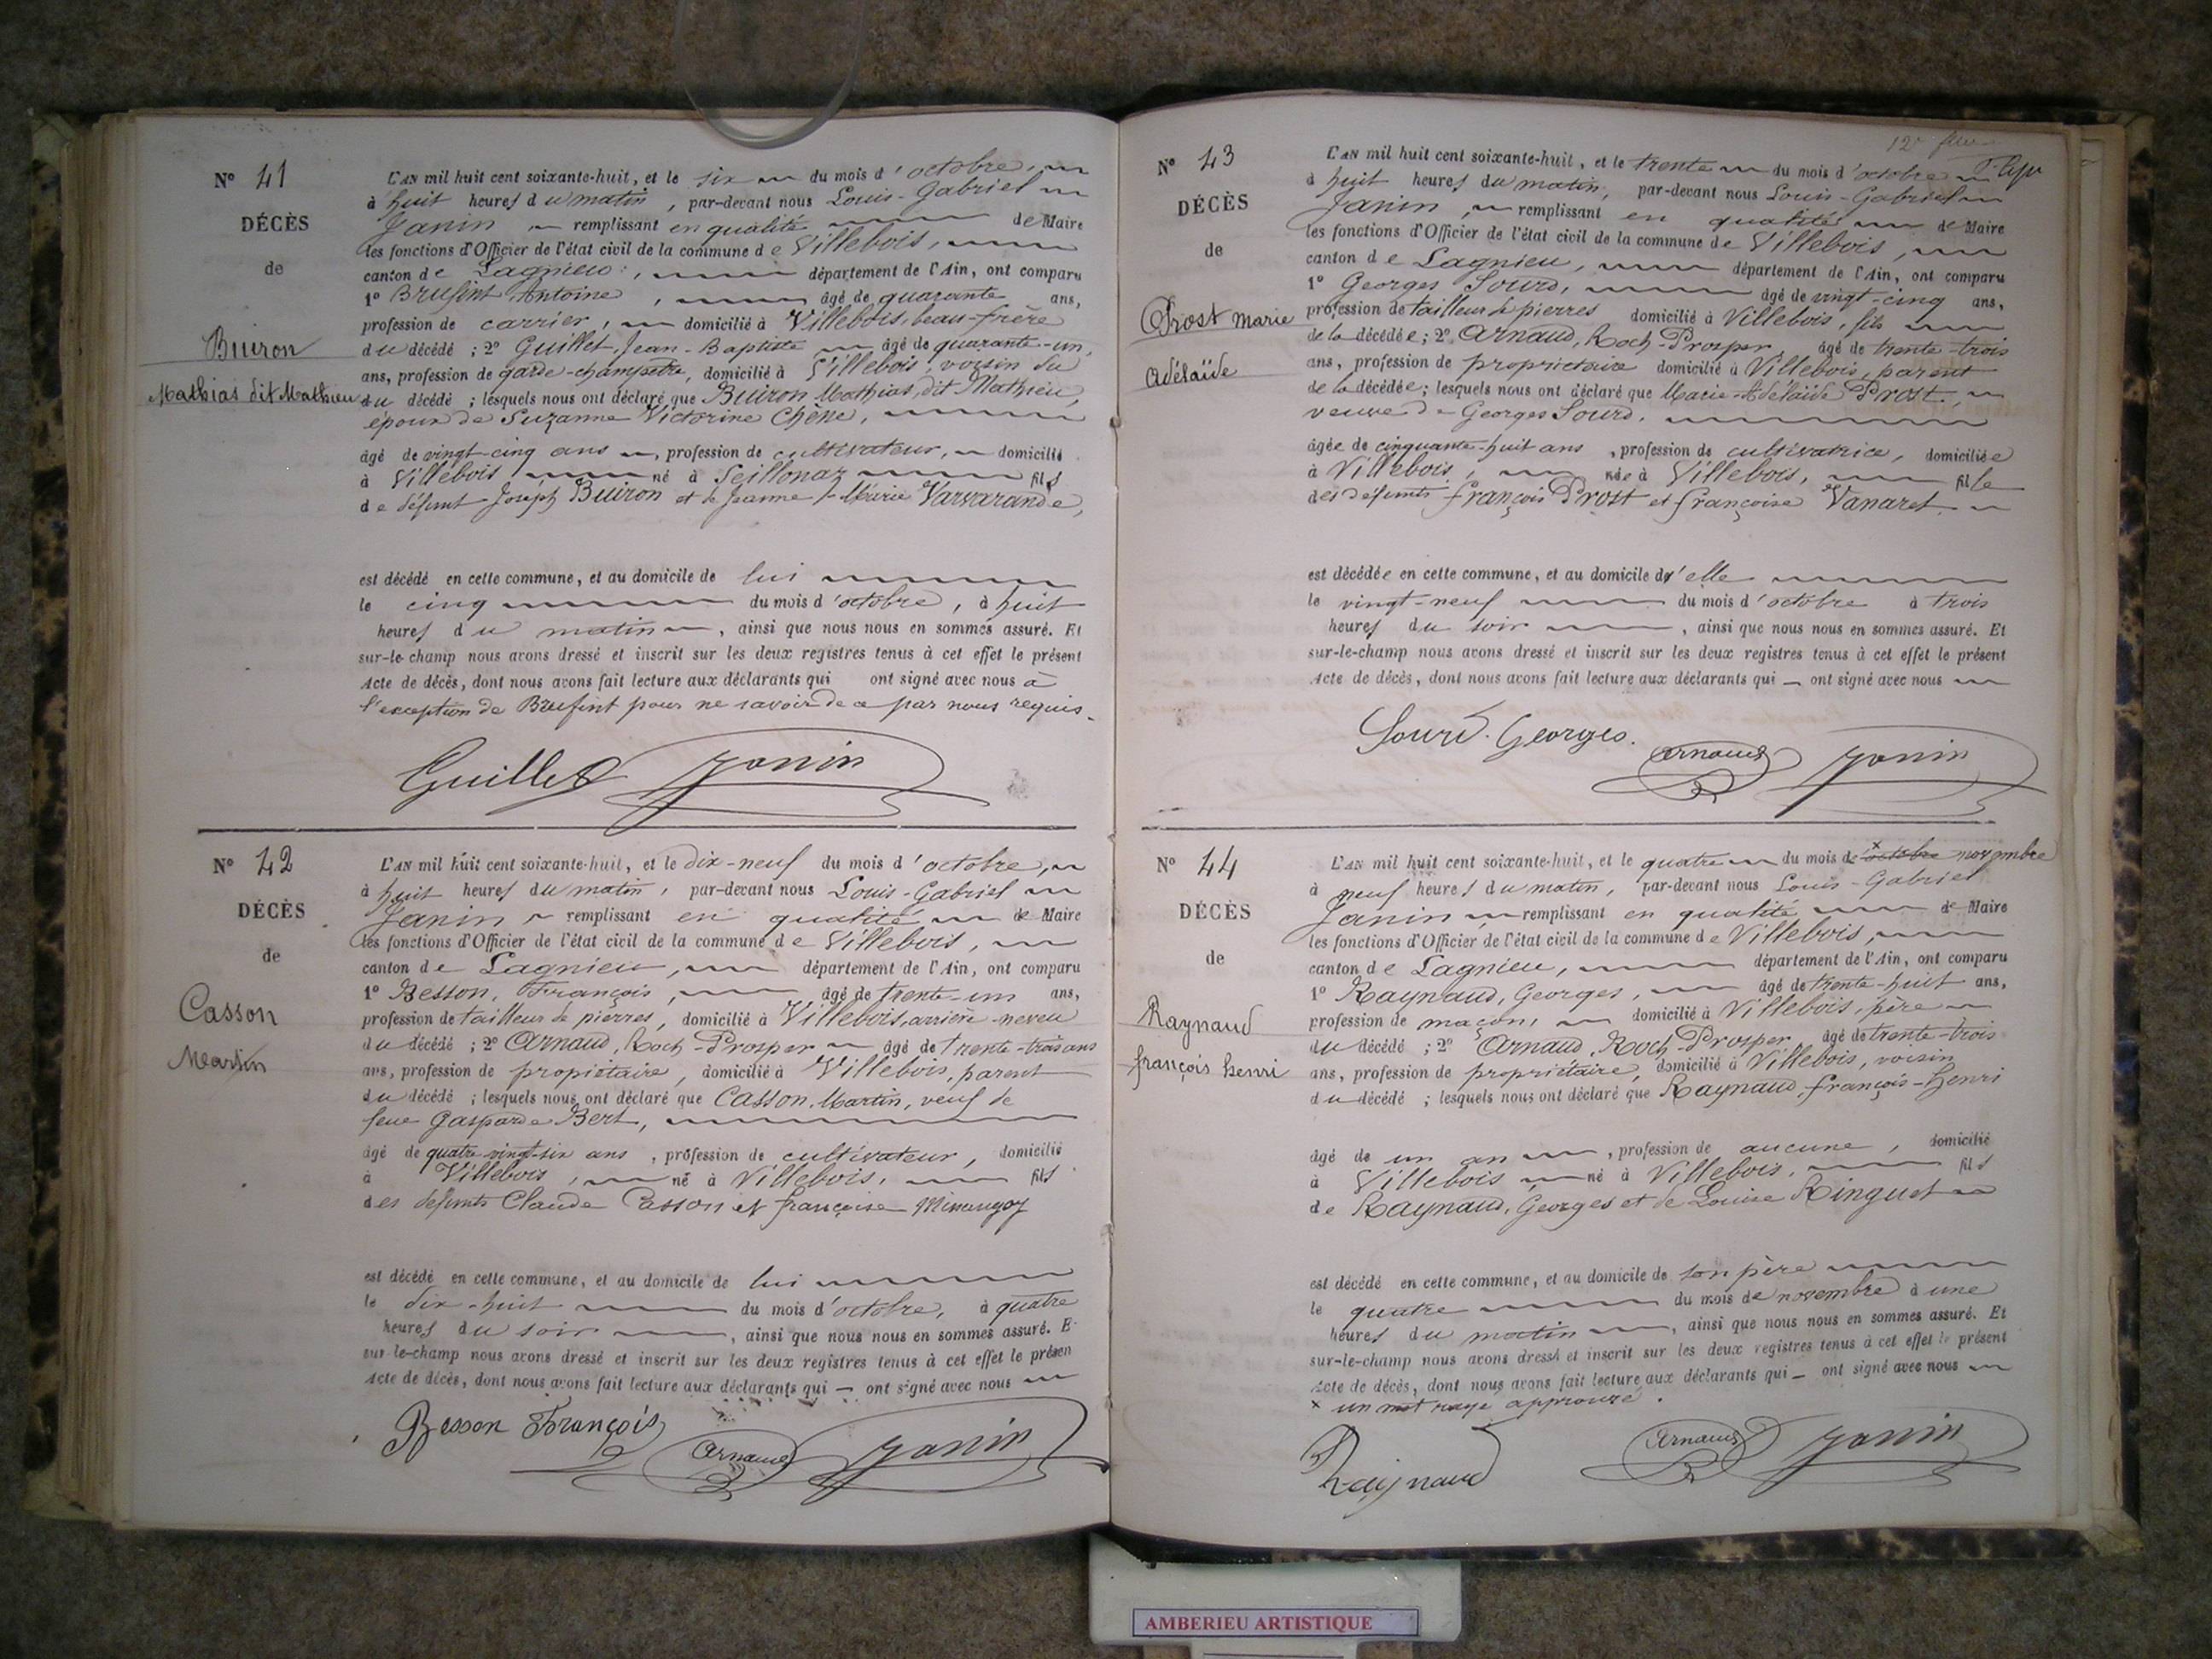 Nº 41
DÉCÈS
de
Buiron
Mathias dit Mathieu
L'AN mil huit cent soixante-huit, et le six du mois d'octobre,
à huit heures du matin, par-devant nous Louis-Gabriel
Janin remplissant en qualité de Maire
les fonctions d'Officier de l'état civil de la commune de Villebois,
canton de Lagnieu, département de l'Ain, ont comparu
1º Brufint Antoine, âgé de quarante ans,
profession de carrier, domicilié à Villebois, beau-frère
du décédé ; 2º Guillet, Jean-Baptiste âgé de quarante-un,
ans, profession de garde-champêtre, domicilié à Villebois, voisin du
du décédé ; lesquels nous ont déclaré que Buiron Mathias, dit Mathieu,
époux de Suzanne Victorine Chêne,
âgé de vingt-cinq ans, profession de cultivateur, domicilié
à Villebois né à Seillonaz fils
de défunt Joseph Buiron et de Jeanne Marie Varvarande,
est décédé en cette commune, et au domicile de lui
le cinq du mois d'octobre, à huit
heures du matin, ainsi que nous nous en sommes assuré. Et
sur-le-champ nous avons dressé et inscrit sur les deux registres tenus à cet effet le présent
Acte de décès, dont nous avons fait lecture aux déclarants qui ont signé avec nous à
l'exception de Brufint pour ne savoir de ce par nous requis.
Guillet Janin
Nº 42
DÉCÈS
de
Casson
Martin
L'AN mil huit cent soixante-huit, et le dix-neuf du mois d'octobre,
à huit heures du matin, par-devant nous Louis-Gabriel
Janin remplissant en qualité de Maire
les fonctions d'Officier de l'état civil de la commune de Villebois,
canton de Lagnieu, département de l'Ain, ont comparu
1º Besson, François, âgé de trente-un ans,
profession de tailleur de pierres, domicilié à Villebois, arrière-neveu
du décédé ; 2º Arnaud, Roch-Prosper âgé de trente-trois ans
ans, profession de propriétaire, domicilié à Villebois, parent
du décédé ; lesquels nous ont déclaré que Casson, Martin, veuf de
feue Gasparde Bert,
âgé de quatre-vingt-six ans, profession de cultivateur, domicilié
à Villebois, né à Villebois, fils
des défunts Claude Casson et françoise
est décédé en cette commune, et au domicile de lui
le dix-huit du mois d'octobre, à quatre
heures du soir, ainsi que nous nous en sommes assuré. E
sur-le-champ nous avons dressé et inscrit sur les deux registres tenus à cet effet le présen
Acte de décès, dont nous avons fait lecture aux déclarants qui — ont signé avec nous
Besson François Arnaud Janin
Nº 43
DÉCÈS
de
Prost Marie
Adélaïde
L'AN mil huit cent soixante-huit, et le trente du mois d'octobre
à huit heures du matin, par-devant nous Louis-Gabriel
Janin, remplissant en qualité de Maire
les fonctions d'Officier de l'état civil de la commune de Villebois,
canton de Lagnieu, département de l'Ain, ont comparu
1º Georges Sourd, âgé de vingt-cinq ans,
profession de tailleur de pierres domicilié à Villebois, fils
de la décédée ; 2º Arnaud, Roch-Prosper, âgé de trente-trois
ans, profession de propriétaire domicilié à Villebois, parent
de la décédée ; lesquels nous ont déclaré que Marie-Adélaïde Prost,
veuve de Georges Sourd,
âgée de cinquante-huit ans, profession de cultivatrice, domiciliée
à Villebois, née à Villebois, fille
des défunts françois Prost et françoise Vanaret
est décédée en cette commune, et au domicile d'elle
le vingt-neuf du mois d'octobre à trois
heures du soir, ainsi que nous nous en sommes assuré. Et
sur-le-champ nous avons dressé et inscrit sur les deux registres tenus à cet effet le présent
Acte de décès, dont nous avons fait lecture aux déclarants qui — ont signé avec nous
Sourd Georges. Arnaud Janin
Nº 44
DÉCÈS
de
Raynaud
françois henri
L'AN mil huit cent soixante-huit, et le quatre du mois de × octobre novembre
à neuf heures du matin, par-devant nous Louis-Gabriel
Janin remplissant en qualité de Maire
les fonctions d'Officier de l'état civil de la commune de Villebois,
canton de Lagnieu, département de l'Ain, ont comparu
1º Raynaud, Georges, âgé de trente-huit ans,
profession de maçon, domicilié à Villebois, père
du décédé ; 2º Arnaud, Roch-Prosper, âgé de trente-trois
ans, profession de propriétaire, domicilié à Villebois, voisin
du décédé ; lesquels nous ont déclaré que Raynaud, françois-henri
âgé de un an, profession de aucune, domicilié
à Villebois né à Villebois, fils
de Raynaud, Georges et de Louise Ringuet
est décédé en cette commune, et au domicile de son père
le quatre du mois de novembre à une
heures du matin, ainsi que nous nous en sommes assuré. Et
sur-le-champ nous avons dressé et inscrit sur les deux registres tenus à cet effet le présent
Acte de décès, dont nous avons fait lecture aux déclarants qui — ont signé avec nous
× un mot rayé approuvé.
Raynaud Arnaud Janin
AMBERIEU ARTISTIQUE